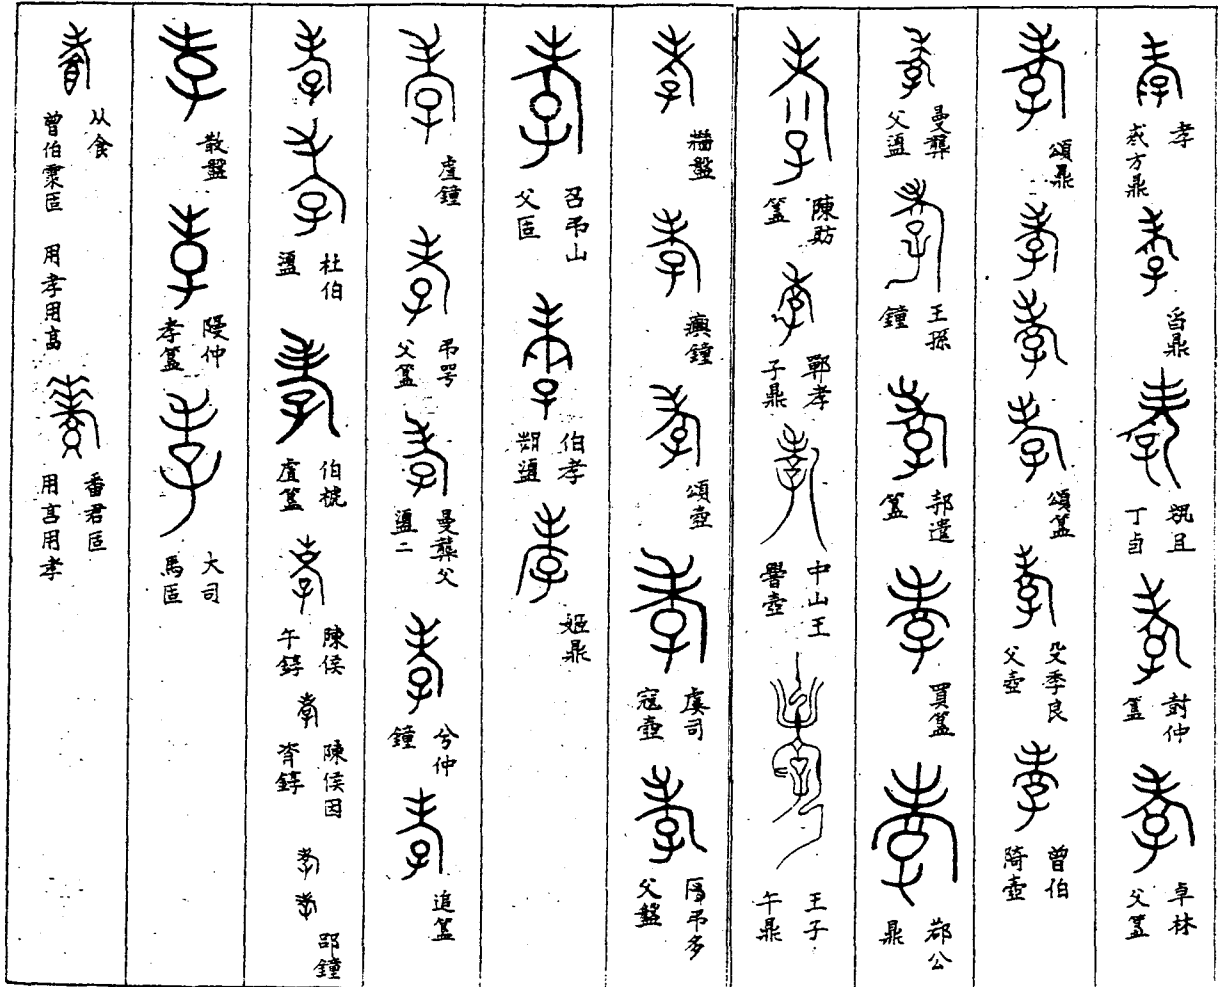 孝
方鼎
舀鼎
且
丁卣
封仲
簋
卓林
父簋
頌鼎
頌簋
殳季良
父壺
曾伯
陭壺
曼龏
父盨
王孫
鐘
邿遣
簋
買簋
鄀公
鼎
陳肪
簋
鄲孝
子鼎
中山王
壺
王子
午鼎
牆盤
𤼈鐘
頌壺
虞司
寇壺
弔多
父盤
召弔山
父
伯孝
盨
姬鼎
虘鐘
弔咢
父簋
曼龏父
盨二
兮仲
鐘
追簋
杜伯
盨
伯椃
虘簋
陳侯
午錞
陳侯因
錞
邵鐘
散盤
仲
孝簋
大司
馬
从食
曾伯
用孝用亯
番君
用亯用孝